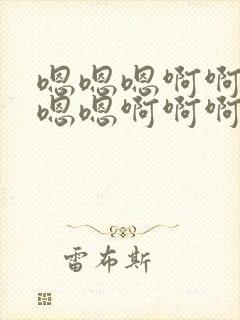 嗯嗯嗯啊啊
嗯嗯啊啊啊
雷布斯